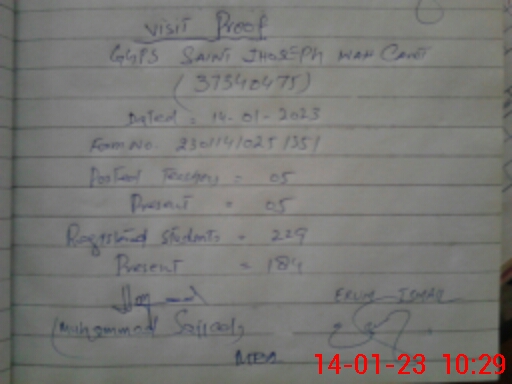 Visit Proof
GGPS SAINT JHOSEPH WAH CANT
(37340475)
Dated = 14-01-2023
Form No. 23011410251351
Posted Teachers = 05
Present = 05
Registered Students = 229
Present = 184
ERUM ISMAIL
Muhammad Sajjad
MEA
14-01-23 10:29